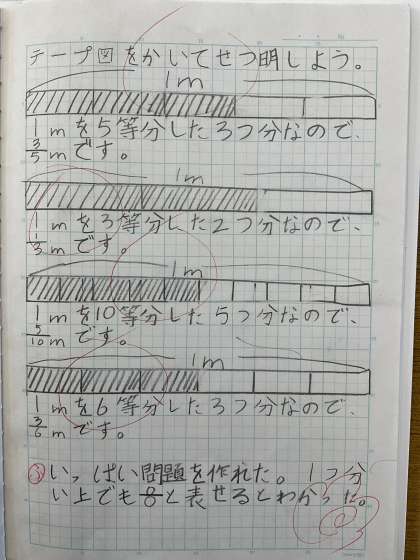 テープ図をかいてせつ明しよう。
1m
1mを5等分した3つ分なので、
3/5mです。
1m
1mを3等分した2つ分なので、
1/3mです。
1m
1mを10等分した5つ分なので、
5/10mです。
1m
1mを6等分した3つ分なので、
3/6mです。
いっぱい問題を作れた。1つ分
い上でも と表せるとわかった。